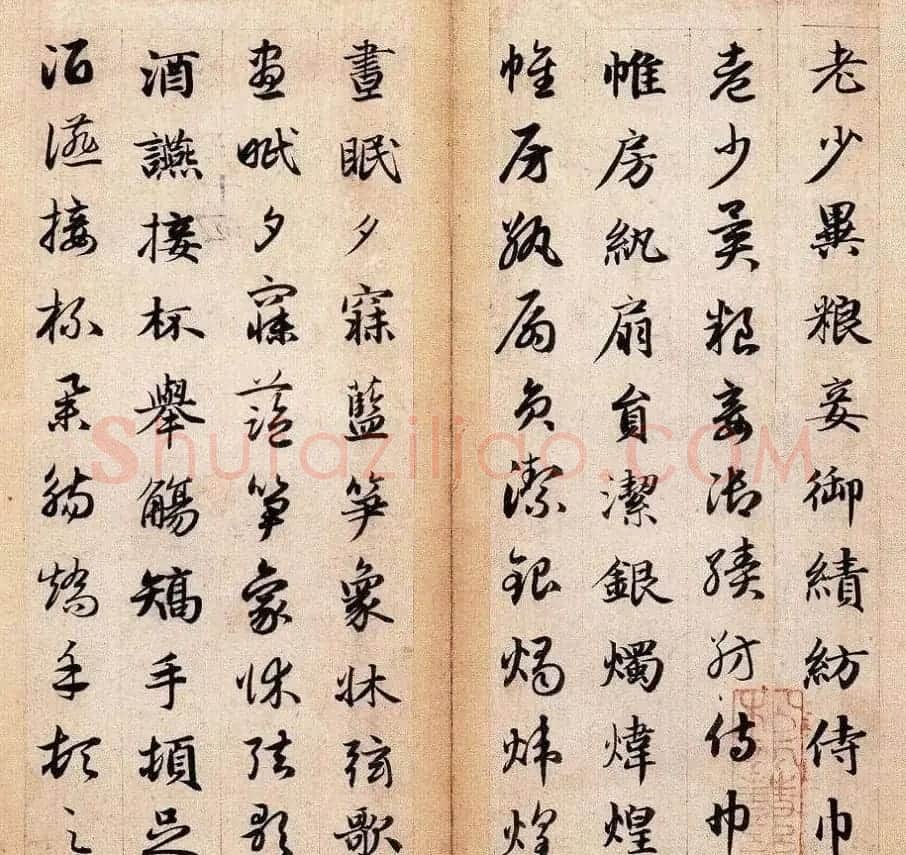 老少異粮妾御績紡侍巾
老少異粮妾御績紡侍巾
帷房紈扇員潔銀燭煒煌
帷房紈扇員潔銀燭煒煌
晝眠夕寐藍笋象牀弦歌
晝眠夕寐藍笋象牀弦歌
酒讌接杯舉觴矯手頓足
酒讌接杯舉觴矯手頓足
Shufaziliao.COM